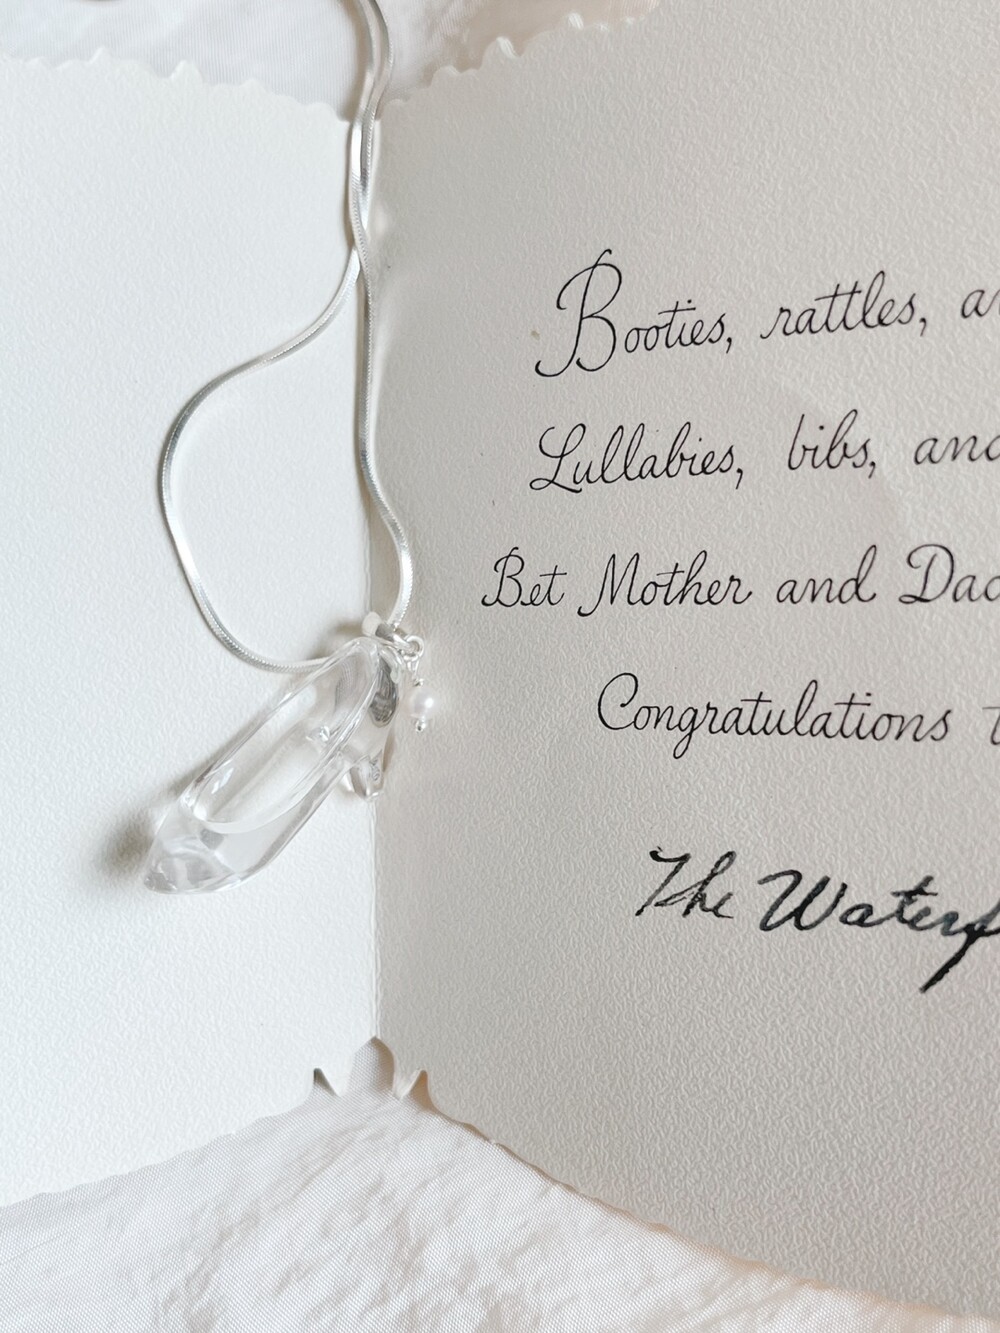 Booties, rattles,
Lullabies, bibs, and
Bet Mother and
Congratulations
The